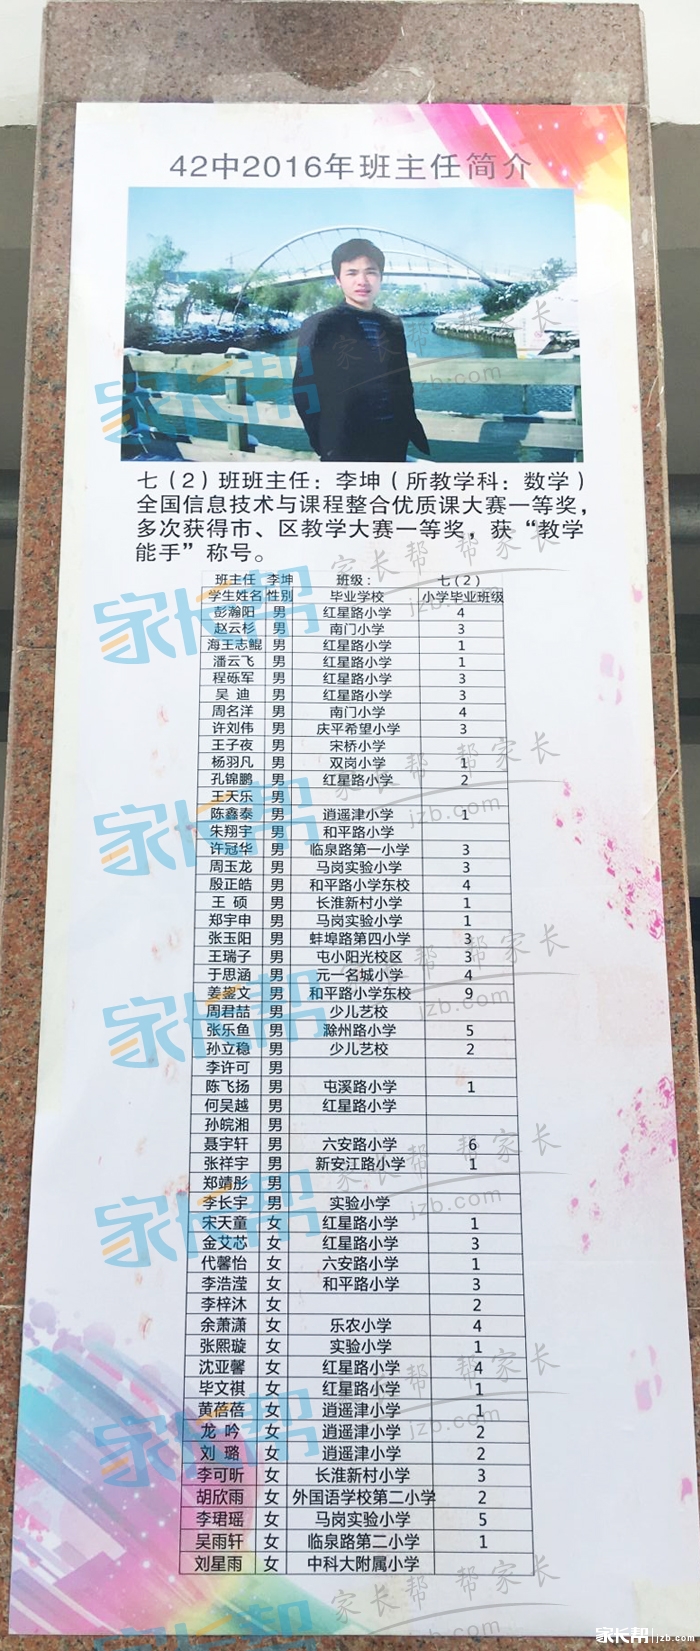 42中2016年班主任简介
七（2）班班主任：李坤（所教学科：数学）
全国信息技术与课程整合优质课大赛一等奖，
多次获得市、区教学大赛一等奖，获“教学
能手”称号。
班主任 李坤 班级： 七（2）
学生姓名 性别 毕业学校 小学毕业班级
彭瀚阳 男 红星路小学 4
赵云杉 男 南门小学 3
海王志鲲 男 红星路小学 1
潘云飞 男 红星路小学 1
程砾军 男 红星路小学 3
吴 迪 男 红星路小学 3
周名洋 男 南门小学 4
许刘伟 男 庆平希望小学 3
王子夜 男 宋桥小学
杨羽凡 男 双岗小学 1
孔锦鹏 男 红星路小学 2
王天乐 男
陈鑫泰 男 逍遥津小学 1
朱翔宇 男 和平路小学
许冠华 男 临泉路第一小学 3
周玉龙 男 马岗实验小学 3
殷正皓 男 和平路小学东校 4
王 硕 男 长淮新村小学 1
郑宇申 男 马岗实验小学 1
张玉阳 男 蚌埠路第四小学 3
王瑞子 男 屯小阳光校区 3
于思涵 男 元一名城小学 4
姜鋆文 男 和平路小学东校 9
周君喆 男 少儿艺校
张乐鱼 男 滁州路小学 5
孙立稳 男 少儿艺校 2
李许可 男
陈飞扬 男 屯溪路小学 1
何吴越 男 红星路小学
孙皖湘 男
聂宇轩 男 六安路小学 6
张祥宇 男 新安江路小学 1
郑靖彤 男
李长宇 男 实验小学
宋天童 女 红星路小学 1
金艾芯 女 红星路小学 3
代馨怡 女 六安路小学 1
李浩滢 女 和平路小学 3
李梓沐 女 2
余萧潇 女 乐农小学 4
张熙璇 女 实验小学 1
沈亚馨 女 红星路小学 4
毕文祺 女 红星路小学 1
黄蓓蓓 女 逍遥津小学 1
龙 吟 女 逍遥津小学 2
刘 璐 女 逍遥津小学 2
李可昕 女 长淮新村小学 3
胡欣雨 女 外国语学校第二小学 2
李珺瑶 女 马岗实验小学 5
吴雨轩 女 临泉路第二小学 1
刘星雨 女 中科大附属小学
家长帮 jzb.com